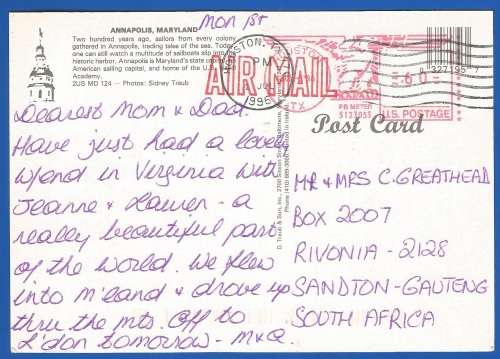 Mon 1st
ANNAPOLIS, MARYLAND
Two hundred years ago, sailors from every colony
gathered in Annapolis, trading tales of the sea. Today
one can still watch a multitude of sailboats slip into the
historic harbor. Annapolis is Maryland's state
American sailing capital, and home of the U.S.
Academy.
2US MD 124 – Photos: Sidney Traub
Dearest Mom & Dad.
Have just had a lovely
w/end in Virginia with
Jeanne & Lauren - a
really beautiful part
of the world. We flew
into m'land & drove up
thru the mts. Off to
L'don tomorrow - M&Q.
D. Traub & Son, Inc.
HOUSTON, TX
PM
1996
AIR MAIL
TX
PB METER
5123055
U.S. POSTAGE
Post Card
MR & MRS C. GREATHEAD
BOX 2007
RIVONIA - 2128
SANDTON - GAUTENG
SOUTH AFRICA